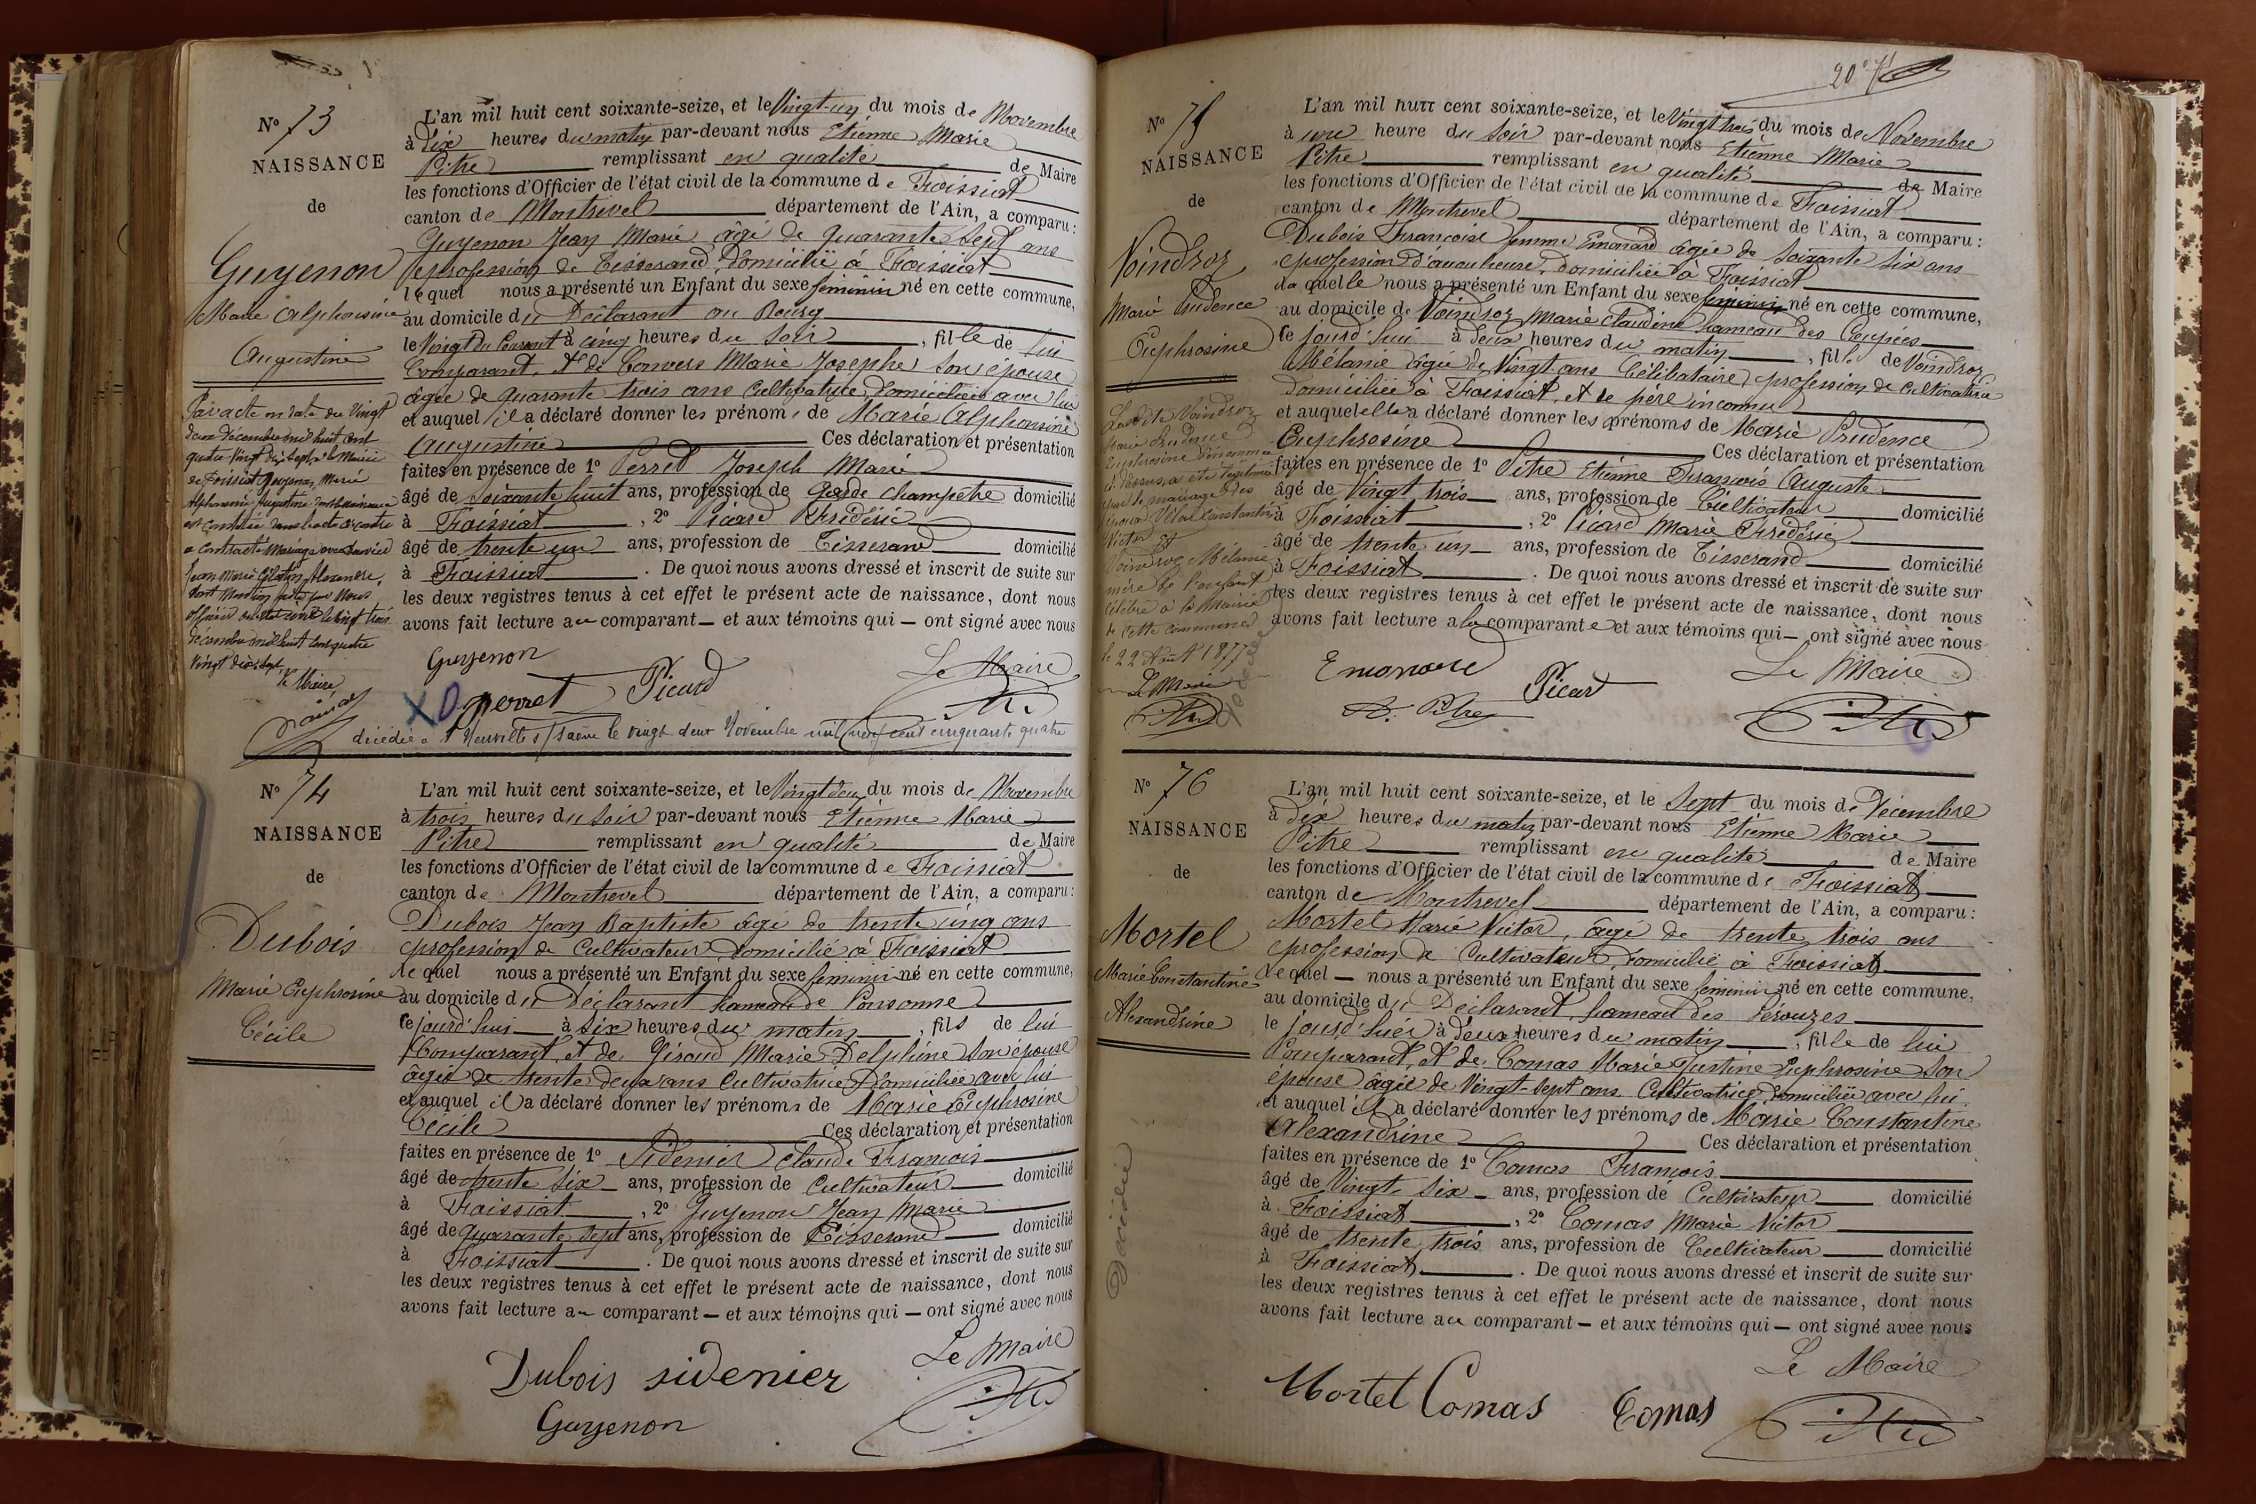 No 73
NAISSANCE
de
Guyenon
Marie Alphonsine
Augustine
Par acte en date du Vingt
deux Décembre mil huit cent
quatre Vingt dix sept à la Mairie
de Foissiat Guyenon Marie
Alphonsine Augustine dont la naissance
est constatée dans l'acte ci contre
a contracté Mariage avec
Jean Marie Alexandre,
dont Mention faite par Nous
officier de l'état civil le Vingt trois
décembre mil huit cent quatre
Vingt dix sept
Le Maire
L'an mil huit cent soixante-seize, et le Vingt-un du mois de Novembre
à Dix heures du matin par-devant nous Etienne Marie
Pitre remplissant en qualité de Maire
les fonctions d'Officier de l'état civil de la commune de Foissiat
canton de Montrevel département de l'Ain, a comparu :
Guyenon Jean Marie âgé de quarante sept ans
profession de Tisserand, domicilié à Foissiat
lequel nous a présenté un Enfant du sexe féminin né en cette commune,
au domicile du Déclarant au Bourg
le Vingt du Courant à cinq heures du soir, fille de lui
Comparant, et de Convers Marie Josephe son épouse
âgée de quarante trois ans Cultivatrice, domiciliée avec lui
et auquel il a déclaré donner les prénoms de Marie Alphonsine
Augustine Ces déclaration et présentation
faites en présence de 1o Perret Joseph Marie
âgé de soixante huit ans, profession de Garde Champêtre domicilié
à Foissiat, 2o Picard Frédéric
âgé de trente un ans, profession de Tisserand domicilié
à Foissiat. De quoi nous avons dressé et inscrit de suite sur
les deux registres tenus à cet effet le présent acte de naissance, dont nous
avons fait lecture au comparant – et aux témoins qui – ont signé avec nous
Guyenon
Le Maire
perret Picard
décédée à Neuville s/Saône le vingt deux Novembre mil neuf cent cinquante quatre
No 74
NAISSANCE
de
Dubois
Marie Euphrosine
Cécile
L'an mil huit cent soixante-seize, et le Vingt deux du mois de Novembre
à trois heures du soir par-devant nous Etienne Marie
Pitre remplissant en qualité de Maire
les fonctions d'Officier de l'état civil de la commune de Foissiat
canton de Montrevel département de l'Ain, a comparu :
Dubois Jean Baptiste âgé de trente cinq ans
profession de Cultivateur, domicilié à Foissiat
lequel nous a présenté un Enfant du sexe féminin né en cette commune,
au domicile du Déclarant hameau de Ponsonne
ce jourd'hui à six heures du matin, fils de lui
Comparant, et de Giraud Marie Delphine son épouse
âgée de trente deux ans Cultivatrice, domiciliée avec lui
et auquel il a déclaré donner les prénoms de Marie Euphrosine
Cécile Ces déclaration et présentation
faites en présence de 1o Sidenier Claude François
âgé de trente six ans, profession de Cultivateur domicilié
à Foissiat, 2o Guyenon Jean Marie
âgé de quarante sept ans, profession de Tisserand domicilié
à Foissiat. De quoi nous avons dressé et inscrit de suite sur
les deux registres tenus à cet effet le présent acte de naissance, dont nous
avons fait lecture au comparant – et aux témoins qui – ont signé avec nous
Le Maire
Dubois sidenier
Guyenon
20e
No 75
NAISSANCE
de
Voindroz
Marie Prudence
Euphrosine
Ladite Voindroz
Marie Prudence
Euphrosine dénommée
ci dessus, a été légitimée
par le mariage des
Constantin
Victor et
Voindroz Mélanie
mère de l'enfant
célébré à la Mairie
de cette commune
le 22 Août 1877
Le Maire
L'an mil huit cent soixante-seize, et le Vingt trois du mois de Novembre
à une heure du soir par-devant nous Etienne Marie
Pitre remplissant en qualité de Maire
les fonctions d'Officier de l'état civil de la commune de Foissiat
canton de Montrevel département de l'Ain, a comparu :
Dubois Françoise femme Emonard âgée de soixante six ans
profession d'accoucheuse, domiciliée à Foissiat
laquelle nous a présenté un Enfant du sexe féminin né en cette commune,
au domicile de Voindroz Marie Claudine hameau des Coupées
ce jourd'hui à deux heures du matin, fille de Voindroz
Mélanie âgée de Vingt ans Célibataire, profession de Cultivatrice
domiciliée à Foissiat, et de père inconnu
et auquel elle a déclaré donner les prénoms de Marie Prudence
Euphrosine Ces déclaration et présentation
faites en présence de 1o Pitre Etienne François Auguste
âgé de Vingt trois ans, profession de Cultivateur domicilié
à Foissiat, 2o Picard Marie Frédéric
âgé de trente un ans, profession de Tisserand domicilié
à Foissiat. De quoi nous avons dressé et inscrit de suite sur
les deux registres tenus à cet effet le présent acte de naissance, dont nous
avons fait lecture à la comparante et aux témoins qui – ont signé avec nous
Emonard Picard Le Maire
A. Pitre
No 76
NAISSANCE
de
Mortel
Marie Constantine
Alexandrine
L'an mil huit cent soixante-seize, et le sept du mois de Décembre
à dix heures du matin par-devant nous Etienne Marie
Pitre remplissant en qualité de Maire
les fonctions d'Officier de l'état civil de la commune de Foissiat
canton de Montrevel département de l'Ain, a comparu :
Mortel Marie Victor, âgé de trente trois ans
profession de Cultivateur, domicilié à Foissiat
lequel – nous a présenté un Enfant du sexe féminin né en cette commune,
au domicile du Déclarant, hameau des Pérouzes
le jourd'hier à deux heures du matin, fille de lui
Comparant, et de Comas Marie Justine Euphrosine son
épouse âgée de Vingt-sept ans Cultivatrice, domiciliée avec lui
et auquel il a déclaré donner les prénoms de Marie Constantine
Alexandrine Ces déclaration et présentation
faites en présence de 1o Comas François
âgé de Vingt six ans, profession de Cultivateur domicilié
à Foissiat, 2o Comas Marie Victor
âgé de trente trois ans, profession de Cultivateur domicilié
à Foissiat. De quoi nous avons dressé et inscrit de suite sur
les deux registres tenus à cet effet le présent acte de naissance, dont nous
avons fait lecture au comparant – et aux témoins qui – ont signé avec nous
Le Maire
Mortel Comas Comas